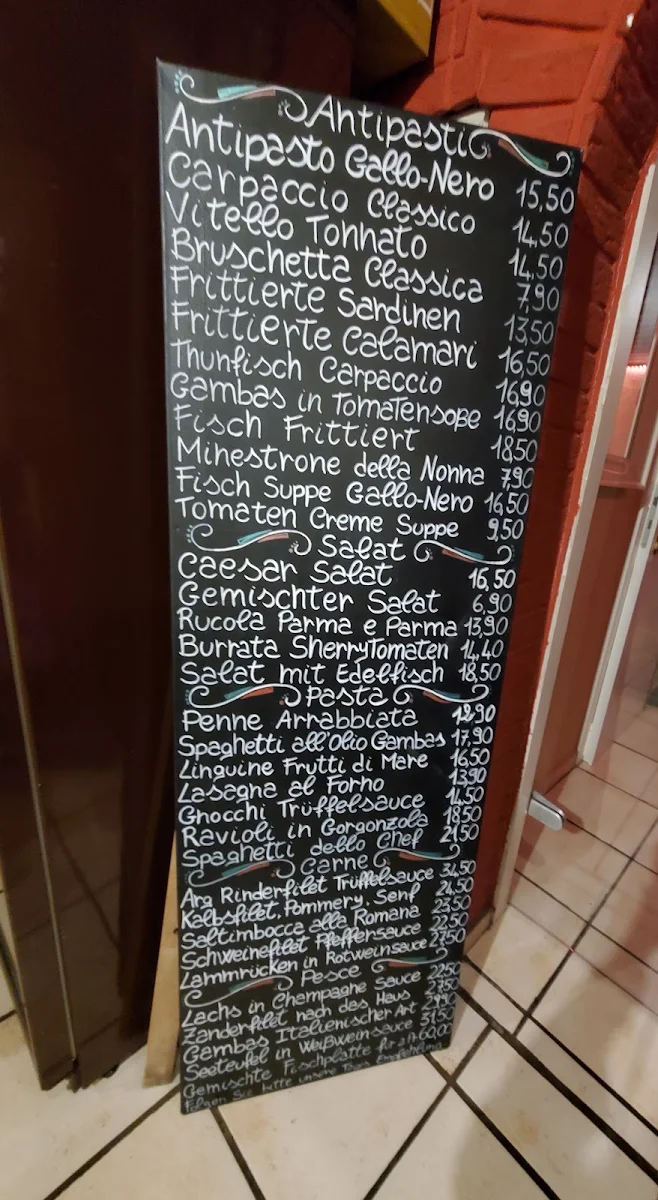 Antipasti
Antipasto Gallo-Nero 15,50
Carpaccio Classico 14,50
Vitello Tonnato 14,50
Bruschetta Classica 7,90
Frittierte Sardinen 13,50
Frittierte Calamari 16,50
Thunfisch Carpaccio 16,90
Gambas in Tomatensoße 16,90
Fisch Frittiert 18,50
Minestrone della Nonna 7,90
Fisch Suppe Gallo-Nero 16,50
Tomaten Creme Suppe 9,50
Salat
Caesar Salat 16,50
Gemischter Salat 6,90
Rucola Parma e Parma 13,90
Burrata SherryTomaten 14,40
Salat mit Edelfisch 18,50
Pasta
Penne Arrabbiata 12,90
Spaghetti all'Olio Gambas 17,90
Linguine Frutti di Mare 16,50
Lasagna al Forno 13,90
Gnocchi Trüffelsauce 14,50
Ravioli in Gorgonzola 18,50
Spaghetti dello Chef 21,50
Carne
Arg Rinderfilet Trüffelsauce 34,50
Kalbsfilet, Pommery, Senf 24,50
Saltimbocca alla Romana 23,50
Schweinefilet Pfeffersauce 22,50
Lammrücken in Rotweinsauce 27,50
Pesce
Lachs in Champagne Sauce 22,50
Zanderfilet nach das Haus 23,50
Gambas Italienischer Art 29,90
Seeteufel in Weißwein Sauce 31,50
Gemischte Fischplatte für 2 P. 60,00
Folgen Sie bitte unsere Tages Empfehlung